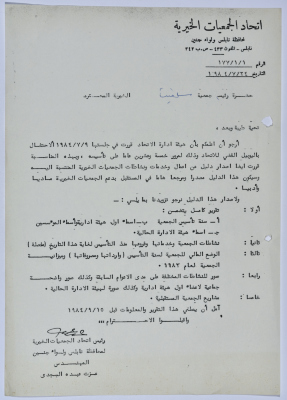 اتحاد الجمعيات الخيرية
لمحافظة نابلس ولواء جنين
نابلس - تلفون ٤٢٣ - ص.ب ٢٤٢
الرقم ١٧٧/١/٦
التاريخ ١٩٨٤/٧/٢٤
حضرة رئيس جمعية الخيرية المحترم
تحية طيبة وبعد ،
أرجو أن اعلمكم بأن هيئة ادارة الاتحاد قررت في جلستها ١٩٨٤/٧/٩ الاحتفال
باليوبيل الفضي للاتحاد وذلك لمرور خمسة وعشرين عاما على تأسيسه وبهذه المناسبة
قررت ايضا اصدار دليل عن اعمال وخدمات ونشاطات الجمعيات الخيرية المنتسبة اليه
وسيكون هذا الدليل مصدرا ومرجعا هاما في المستقبل يدعم الجمعيات الخيرية ماديا
وأدبيا .
ولاصدار هذا الدليل نرجو تزويدنا بما يلي :-
أولا : تقرير كامل يتضمن :
أ- سنة تأسيس الجمعية ب- اسماء اول هيئة ادارية وأسماء المؤسسين
ج- اسماء هيئة الادارة الحالية .
ثانيا : نشاطات الجمعية وخدماتها وفروعها منذ التأسيس لغاية هذا التقرير (مفصلة)
ثالثا : الوضع المالي للجمعية لسنة التأسيس (وارداتها ومصروفاتها) وميزانية
الجمعية لعام ١٩٨٣ .
رابعا : صور للنشاطات المختلفة على مدى الاعوام السابقة وكذلك صور واضحة
جماعية لاعضاء اول هيئة ادارية وكذلك صورة لهيئة الادارة الحالية .
خامسا : مشاريع الجمعية المستقبلية .
آمل أن يصلني هذا التقرير والمعلومات قبل ١٩٨٤/٩/١٥
واقبلوا الاحترام ،،،
رئيس اتحاد الجمعيات الخيرية
لمحافظة نابلس ولواء جنين
المهندس